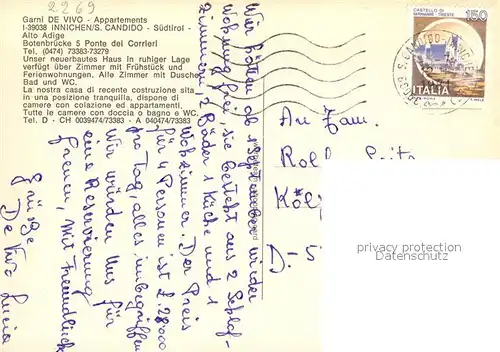 2269
Garni DE VIVO - Appartements
I-39038 INNICHEN/S. CANDIDO - Südtirol -
Alto Adige
Botenbrücke 5 Ponte dei Corrieri
Tel. (0474) 73383-73279
Unser neuerbautes Haus in ruhiger Lage
verfügt über Zimmer mit Frühstück und
Ferienwohnungen. Alle Zimmer mit Dusche,
Bad und WC.
La nostra casa di recente costruzione sita
in una posizione tranquilla, dispone di
camere con colazione ed appartamenti,
Tutte le camere con doccia o bagno e WC.
Tel. D - CH 0039474/73383 - A 040474/73383
Wir hätten ab 1 September wieder
Wohnung frei sie besteht aus 2 Schlaf-
zimmern, 2 Bäder 1 Küche und 1
Wohnzimmer. Der Preis
für 4 Personen ist £ 28000
pro Tag, alles inbegriffen
Wir würden uns für
eine Reservierung
freuen, Mit Freundlich
Grüsse
De Vivo Lucia
CASTELLO DI
MIRAMARE - TRIESTE
150
ITALIA
An Fam.
Köl
D-5
privacy protection watermark